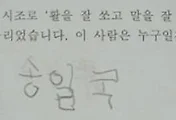 시조로 '활을 잘 쏘고 말을 잘
리었습니다. 이 사람은 누구일
송일국